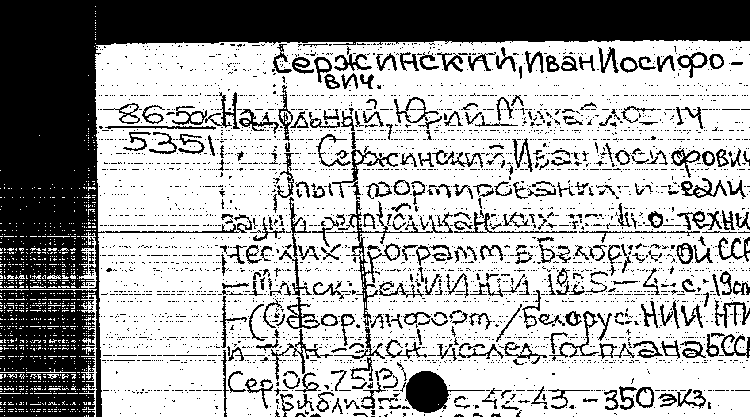 Сержинский, Иван Иосифо-
вич.
86-50к Надольный, Юрий
5351
Сержинский, Иван Иосифович
Опыт формирования и реали
зации республиканских научно техни
ческих программ в Белорусской ССР
—Минск: БелНИИ НТИ, 1985.— 4 с.; 19см
—(Обзор. информ. / Белорус. НИИ НТИ
и техн.-экон. исслед. Госплана БССР
Сер 06.75.13)
Библиогр.: с. 42-43. - 350 экз.